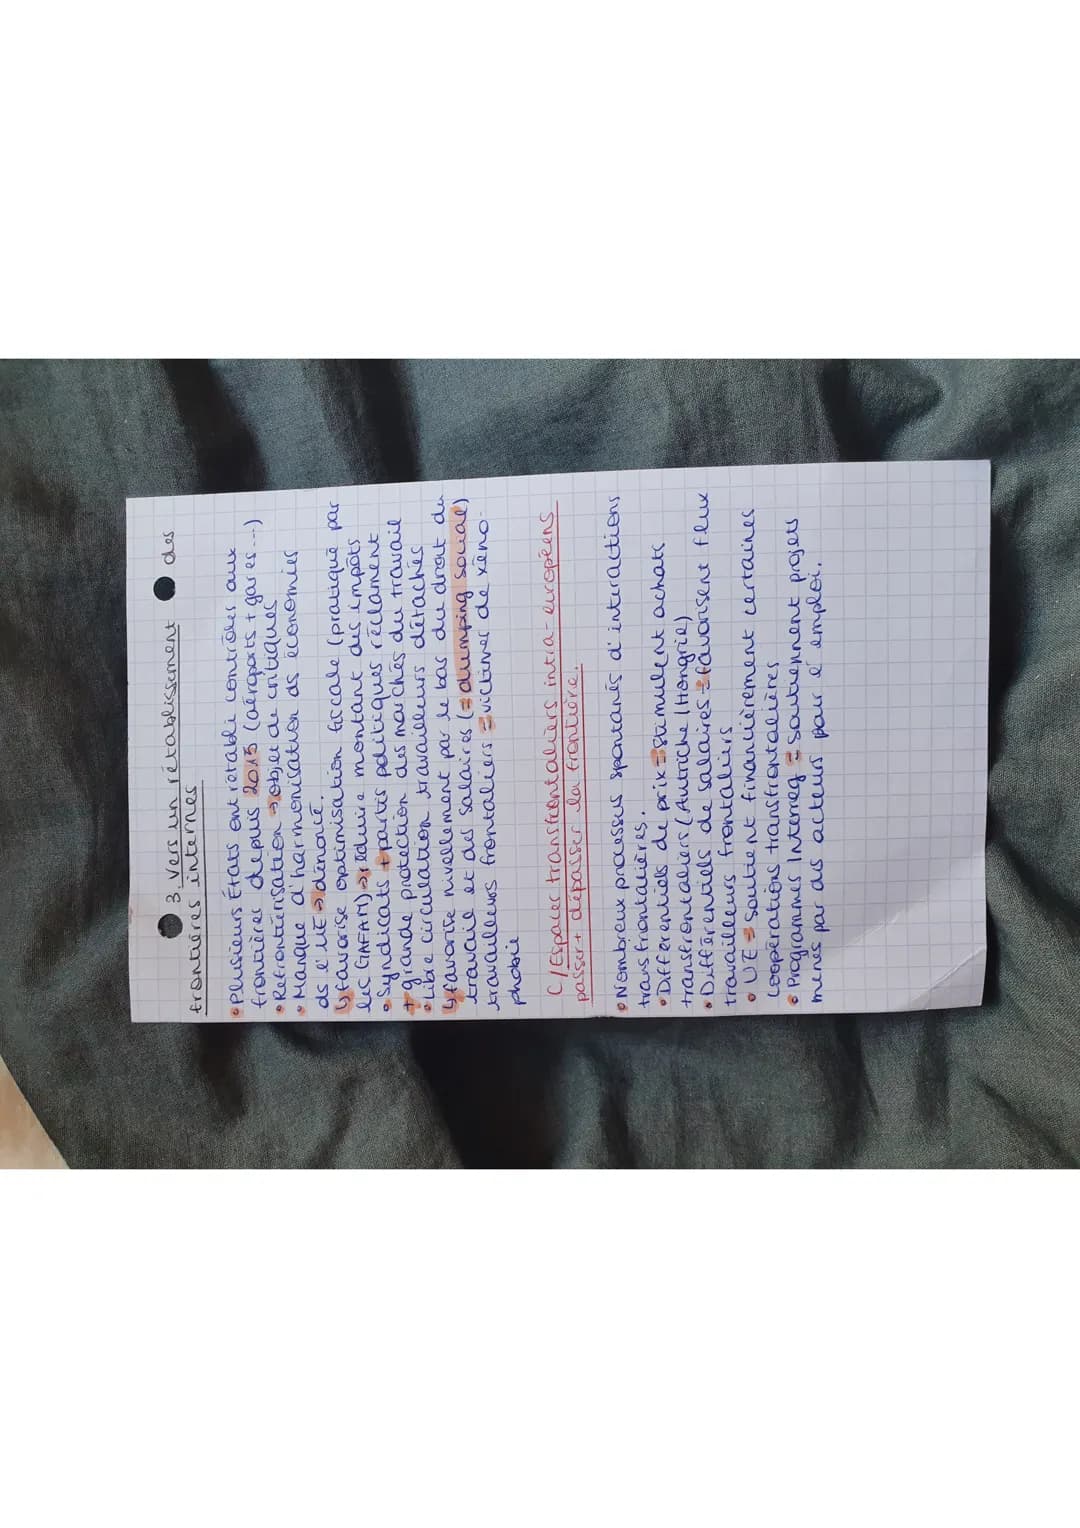 3. Vers un rétablissement des
frontières internes
• Plusieurs États ont rétabli contrôles aux
frontières depuis 2015 (aéroports + gares...)
• Refrontiérisation → objet de critiques
• Manque d'harmonisation ds économies
ds l'UE → dénoncé.
↳ favorise optimisation fiscale (pratiqué par
les GAFAM) → réduire montant des impôts
• Syndicats + partis politiques réclament
+ grande protection des marchés du travail
• Libre circulation travailleurs détachés
↳ favorise nivellement par le bas du droit du
travail et des salaires (= dumping social)
travailleurs frontaliers = victimes de xéno-
phobie
C/ Espaces transfrontaliers intra-européens
passer + dépasser la frontière.
• Nombreux processus spontanés d'interactions
transfrontalières.
• Différentiels de prix = stimulent achats
transfrontaliers (Autriche/Hongrie)
• Différentiels de salaires = favorisent flux
travailleurs frontaliers
• UE = soutient financièrement certaines
coopérations transfrontalières
• Programmes Interreg = soutiennent projets
menés par des acteurs pour l'emploi.